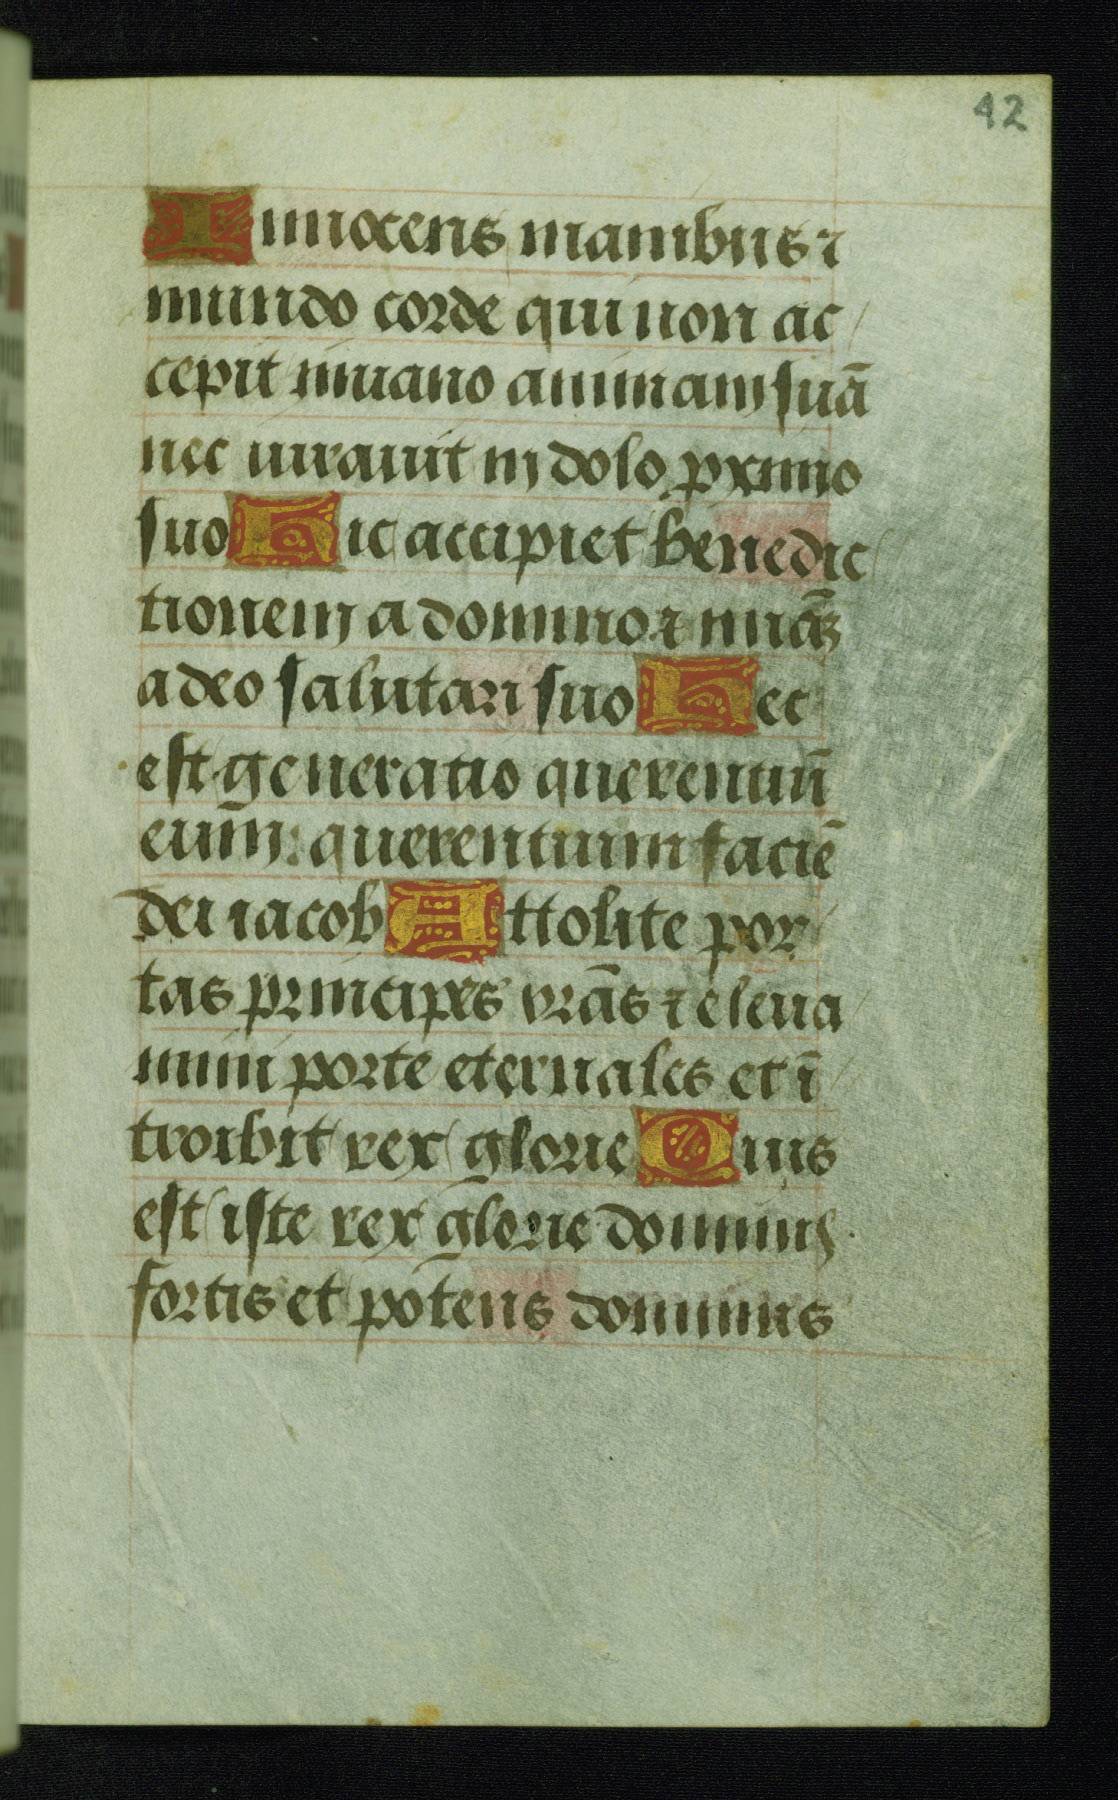 42
Innocens manibus ⁊
mundo corde qui non ac
cepit inuano animam suā
nec iurauit in dolo pximo
suo Hic accipiet benedic
tionem a domino ⁊ miāʒ
a deo salutari suo Hec
est generatio querentiū
eum: querentium faciē
dei iacob Attolite por
tas principes vrās ⁊ eleua
mini porte eternales et ī
troibit rex glorie Quis
est iste rex glorie dominus
fortis et potens dominus